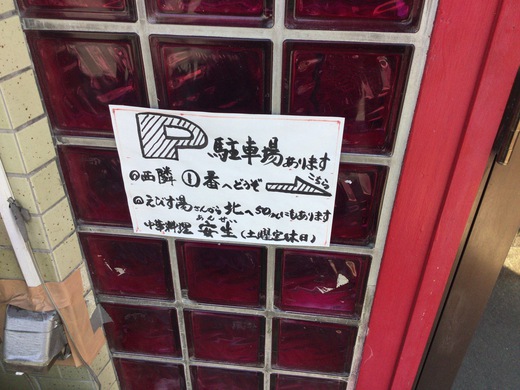 P 駐車場あります
①西隣 ① 番へどうぞ こちら
②えびす湯さんから北へ50mにもあります
あんせい
中華料理 安生 (土曜定休日)